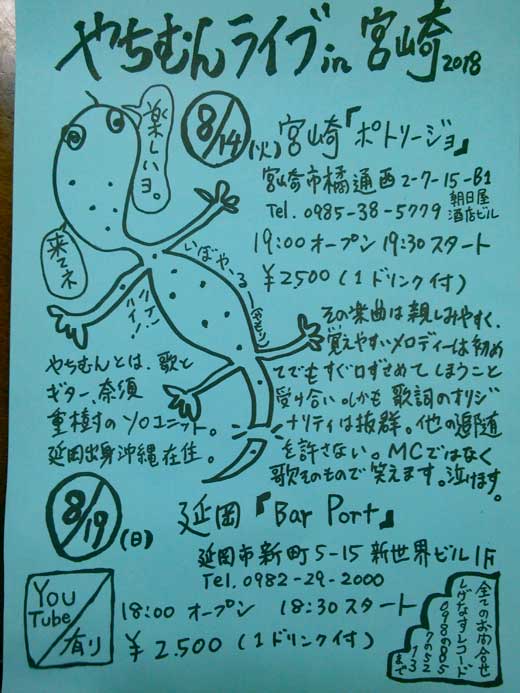 やちむんライブin宮崎2018
楽しいヨ。
来てネ
8/14(火)宮崎「ポトリージョ」
宮崎市橘通西2-7-15-B1
朝日屋
酒店ビル
Tel. 0985-38-5779
19:00オープン 19:30スタート
¥2500(1ドリンク付)
いぼやーるー
(やもり)
ハイ!
その楽曲は親しみやすく、
覚えやすいメロディーは初め
てでもすぐ口ずさめてしまうこと
受け合い。しかも歌詞のオリジ
ナリティは抜群。他の追随
を許さない。MCではなく
歌そのもので笑えます。泣けます。
やちむんとは、歌と
ギター、奈須
重樹のソロユニット。
延岡出身沖縄在住。
8/19(日)
延岡「Bar Port」
延岡市新町5-15 新世界ビル1F
Tel. 0982-29-2000
18:00オープン 18:30スタート
¥2.500(1ドリンク付)
You
Tube
有り
全てのお問合せ
しげなすレコード
まで